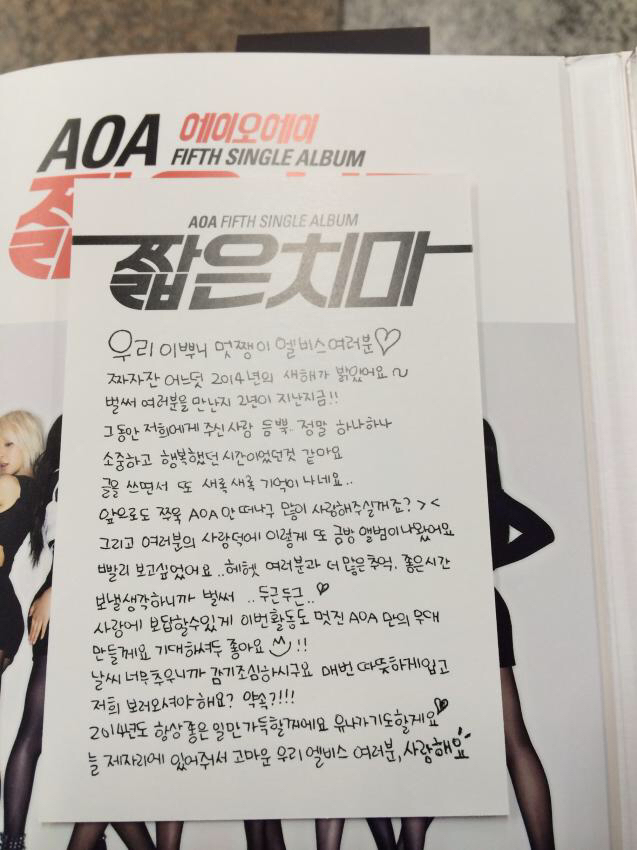 AOA 에이오에이
FIFTH SINGLE ALBUM
AOA FIFTH SINGLE ALBUM
짧은치마
우리 이뿌니 멋쨍이 엘비스여러분♡
짜자잔 어느덧 2014년의 새해가 밝았어요~
벌써 여러분을 만난지 2년이 지난지금!!
그동안 저희에게 주신사랑 듬뿍.. 정말 하나하나
소중하고 행복했던 시간이었던것 같아요
글을 쓰면서 또 새록새록 기억이 나네요..
앞으로도 쭈욱 AOA 안떠나구 많이 사랑해주실꺼죠? > <
그리고 여러분의 사랑덕에 이렇게 또 금방 앨범이나왔어요
빨리 보고싶었어요.. 헤헷 여러분과 더 많은추억, 좋은시간
보낼생각하니까 벌써 ..두근두근..♡
사랑에 보답할수있게 이번활동도 멋진 AOA 만의 무대
만들께요 기대하셔두 좋아요 !!
날씨 너무추우니까 감기조심하시구요 매번 따뜻하게입고
저희 보러오셔야해요? 약속?!!!
2014년도 항상좋은 일만가득할꺼에요 유나가기도할게요♡
늘 제자리에 있어줘서 고마운 우리 엘비스 여러분, 사랑해요